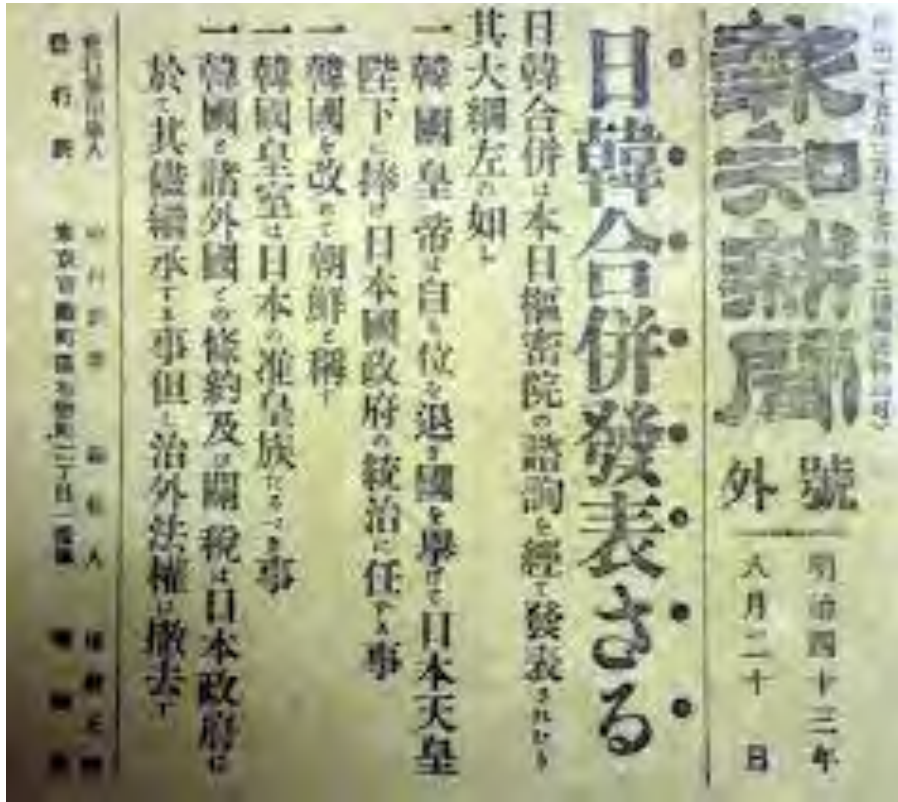 報知新聞
號外
明治四十三年
八月二十 日
日韓合併發表さる
日韓合併は本日樞密院の諮詢を經て發表されたり
其大綱左の如し
一韓國皇帝は自ら位を退き國を擧げて日本天皇
陛下に捧げ日本國政府の統治に任かす事
一韓國を改めて朝鮮と稱す
一韓國皇室は日本の准皇族たるべき事
一韓國と諸外國との條約及び關稅は日本政府に
於て其儘繼承する事但し治外法權は撤去す
發行所